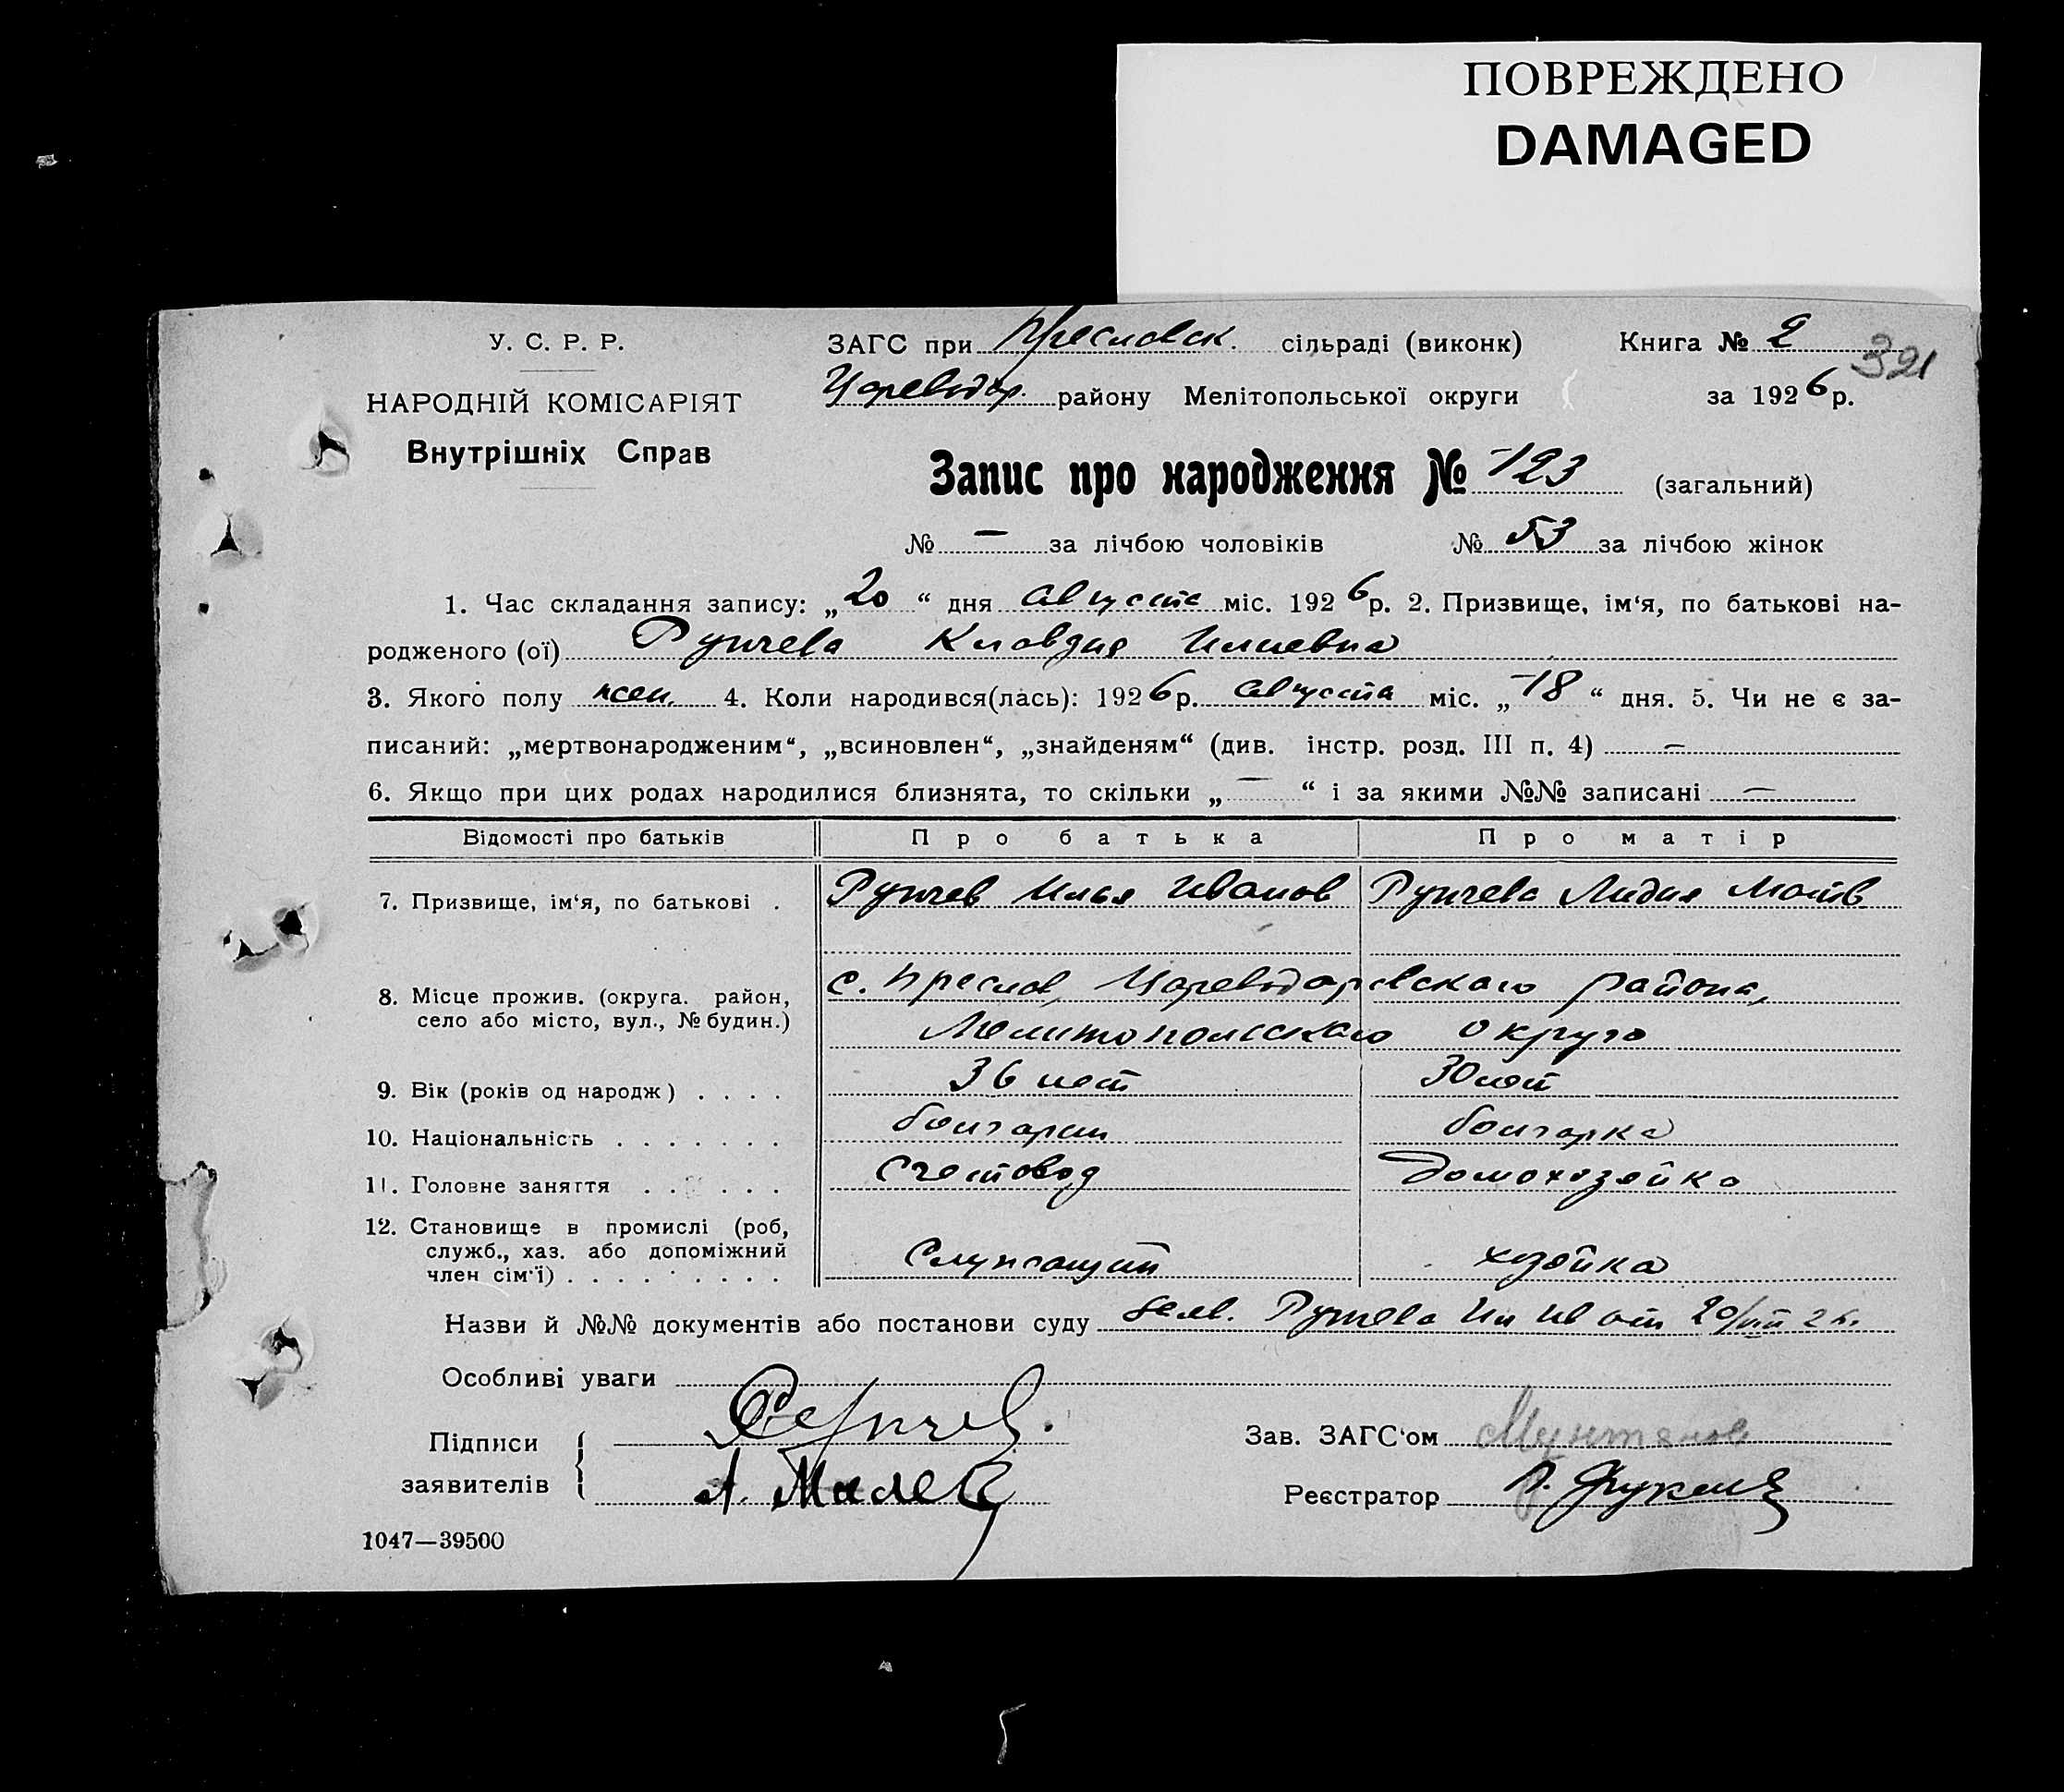 ПОВРЕЖДЕНО
DAMAGED
У. С. Р. Р.
НАРОДНІЙ КОМІСАРІЯТ
Внутрішніх Справ
ЗАГС при Преславск. сільраді (виконк) Книга № 2
321
Цареводар. району Мелітопольської округи за 1926 р.
Запис про народження № 123 (загальний)
№ — за лічбою чоловіків № 53 за лічбою жінок
1. Час складання запису: „20“ дня августа міс. 1926 р. 2. Призвище, ім‘я, по батькові на-
родженого (ої) Рупчева Клавдия Илиевна
3. Якого полу жен. 4. Коли народився(лась): 1926 р. августа міс. „18“ дня. 5. Чи не є за-
писаний: „мертвонародженим“, „всиновлен“, „знайденям“ (див. інстр. розд. III п. 4) —
6. Якщо при цих родах народилися близнята, то скільки „—“ і за якими №№ записані —
Відомості про батьків Про батька Про матір
7. Призвище, ім‘я, по батькові . Рупчев Илья Иванов Рупчева Лидия Матв
8. Місце прожив. (округа. район, село або місто, вул., № будин.) с. Преслав, Цареводаровскаго района,
Мелитопольскаго округа
9. Вік (років од народж) . . . . 36 лет 30 лет
10. Національність . . . . . . . болгарин болгарка
11. Головне заняття . . . . . . Счетовод Домохозяйка
12. Становище в промислі (роб, служб., хаз. або допоміжний член сім‘ї) . . . . . . . . . Служащий хозяйка
Назви й №№ документів або постанови суду Рупчева Ил Ив от 20/VIII 26.
Особливі уваги
Підписи
заявителів
Зав. ЗАГС‘ом
Реєстратор
1047—39500